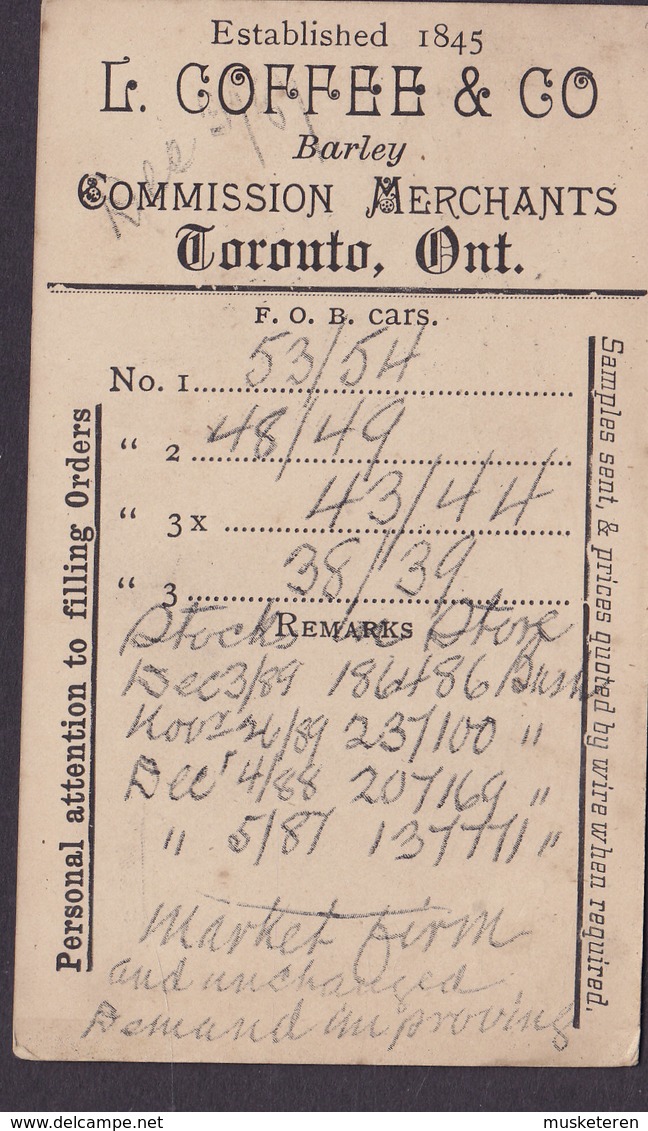 Established 1845
L. COFFEE & CO
Dec
Barley
COMMISSION MERCHANTS
Toronto, Ont.
F. O. B. cars.
No. 1 53/54
" 2 48/49
" 3x 43/44
" 3 38/39
REMARKS
Stocks in Store
Dec 3/89 186486 Bush
Nov 26/89 237100 "
Decr 4/88 207169 "
" 5/87 137771 "
Market firm
and unchanged
Demand improving
Personal attention to filling Orders
Samples sent, & prices quoted by wire when required.
www.delcampe.net
musketeren